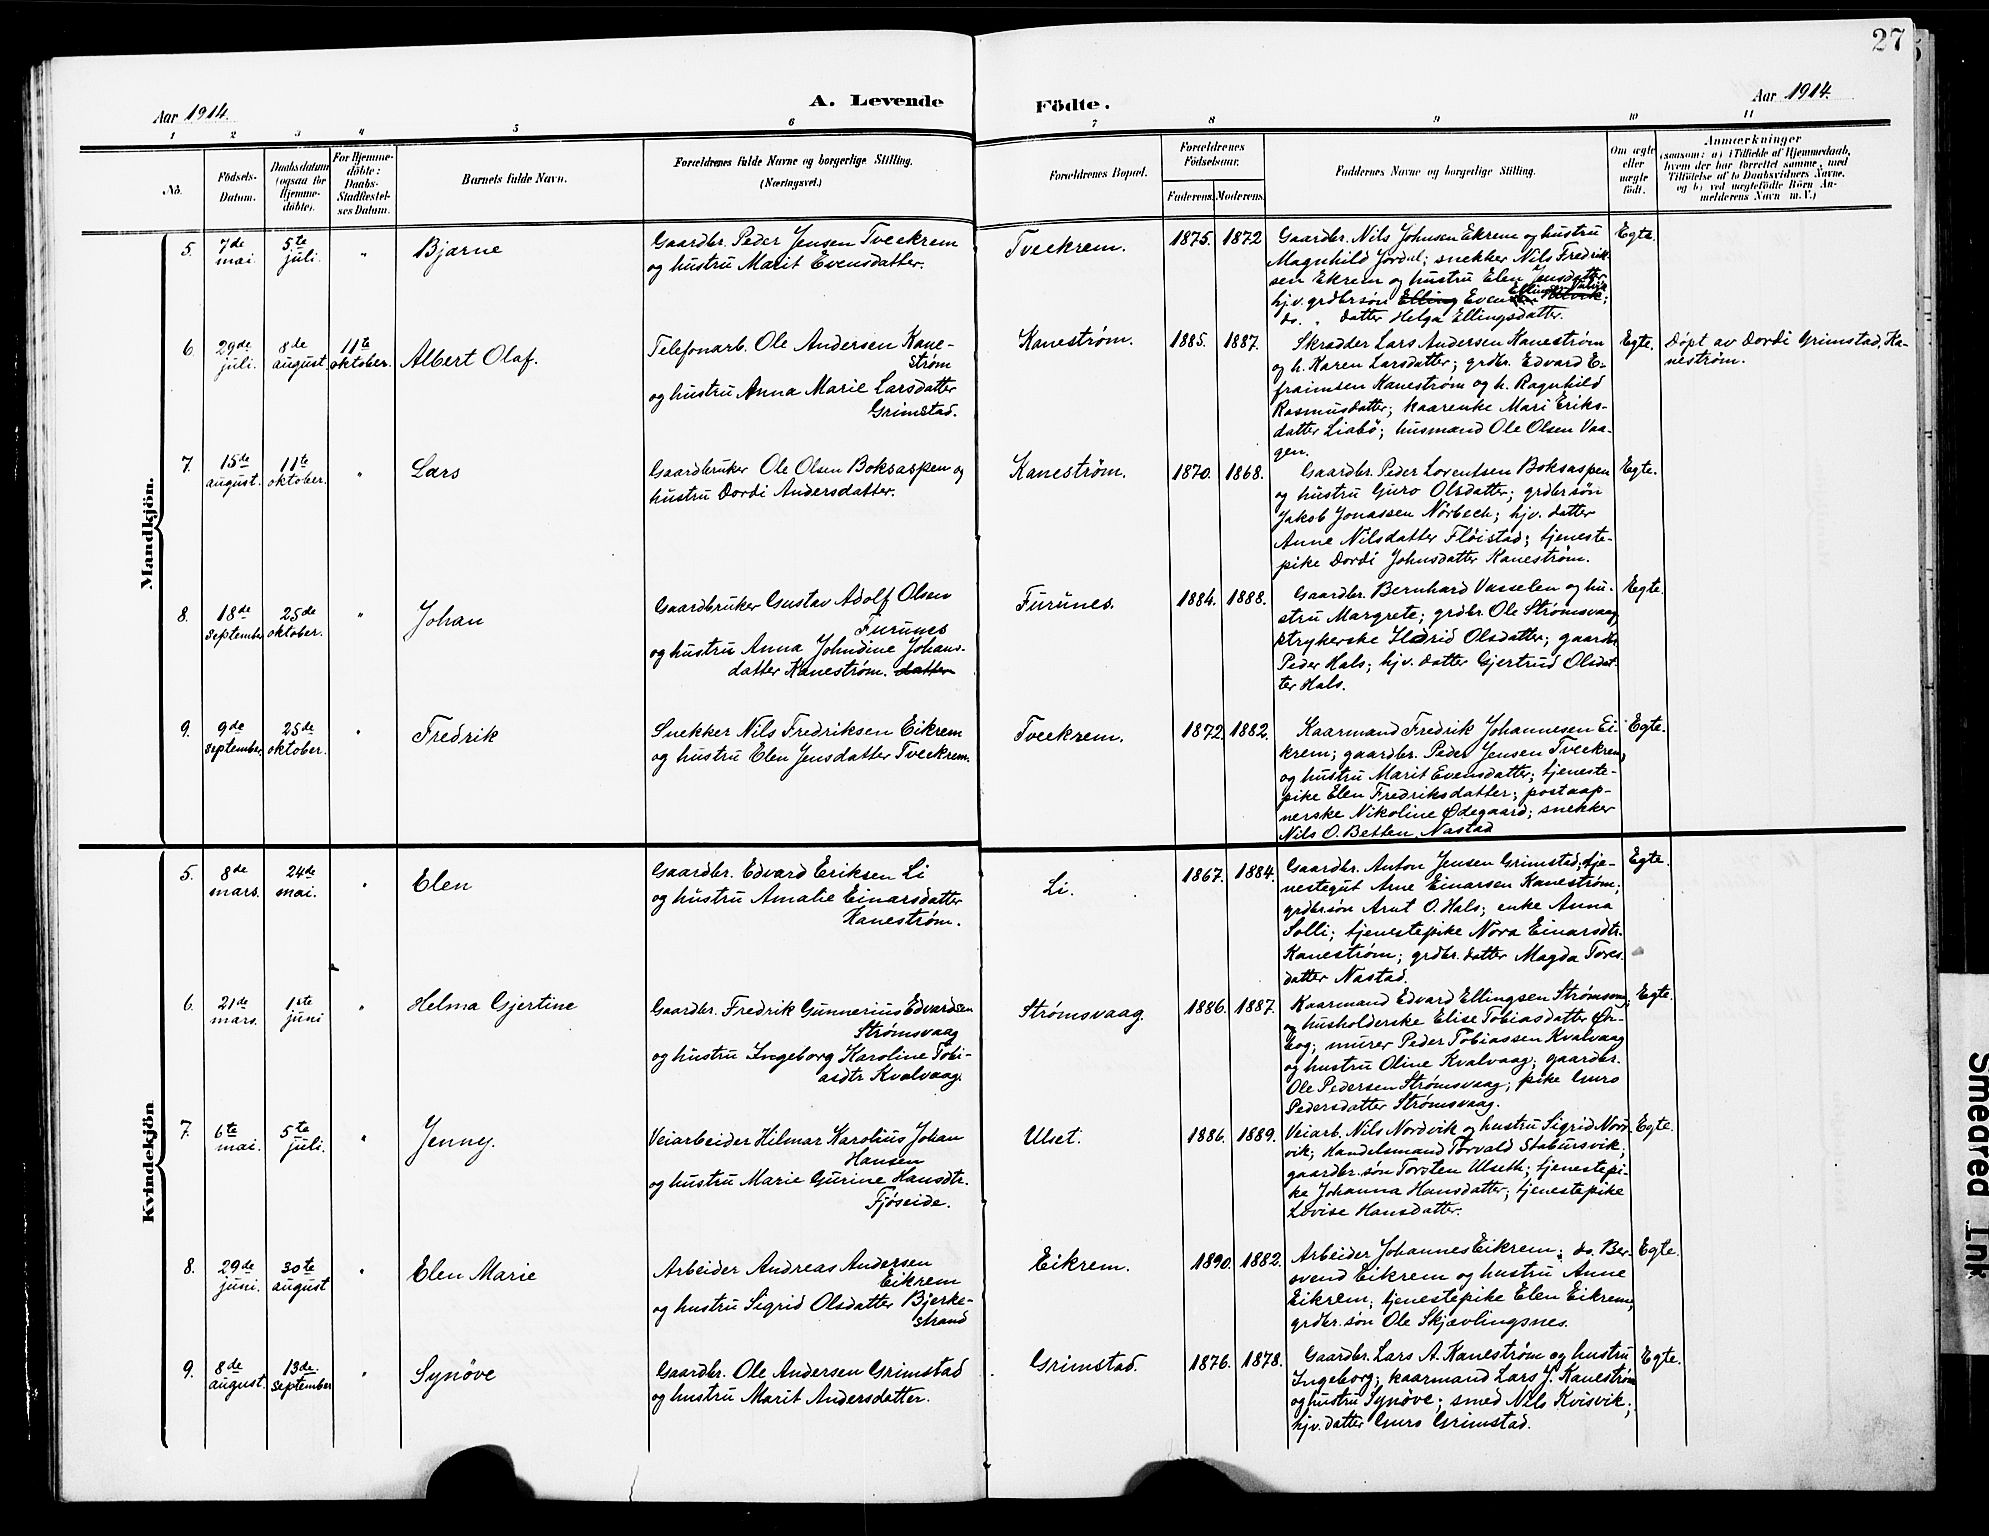 27
Aar 1914.
A. Levende
Födte.
Aar 1914.
1 2 3 4 5 6 7 8 9 10 11
No.
Födsels-
Datum.
Daabsdatum
(ogsaa for
Hjemme-
döbte).
For Hjemme-
döbte:
Daabs-
Stadfæstel-
ses Datum.
Barnets fulde Navn.
Forældrenes fulde Navne og borgerlige Stilling.
(Næringsvei.)
Forældrenes Bopæl.
Forældrenes
Födselsaar.
Faderens. Moderens.
Faddernes Navne og borgerlige Stilling.
Om ægte
eller
uægte
födt.
Anmærkninger
(saasom: a) i Tilfælde af Hjemmedaab,
hvem der har forrettet samme, med
Tilföielse af to Daabsvidners Navne,
og b) ved uægtefödte Börn An-
melderens Navn m. V.)
Mandkjön.
5.
7de
mai.
5te
juli.
"
Bjarne
Gaardbr. Peder Jensen Tveekrem
og hustru Marit Evensdatter.
Tveekrem.
1875. 1872
Gaardbr. Nils Johnsen Ekrem og hustru
Magnhild Jordal; snekker Nils Fredrik-
sen Ekrem og hustru Elen Jensdatter
hjv. grdbr søn Elling Even
do. " datter Helga Ellingsdatter.
Egte.
6.
29de
juli.
8de
august.
11te
oktober.
Albert Olaf.
Telefonarb. Ole Andersen Kane-
strøm
og hustru Anna Marie Larsdatter
Grimstad.
Kanestrøm.
1885. 1887.
Skrædder Lars Andersen Kanestrøm
og h. Karen Larsdatter; grdbr. Edvard E-
fraimsen Kanestrøm og h. Ragnhild
Rasmusdatter; kaarenke Mari Eriks-
datter Liabø; husmand Ole Olsen Vaa-
gen.
Egte.
Døpt av Dordi Grimstad, Ka-
neström.
7.
15de
august.
11te
oktober.
"
Lars
Gaardbruker Ole Olsen Boksaspen og
hustru Dordi Andersdatter.
Kanestrøm.
1870. 1868.
Gaardbr. Peder Lorentsen Boksaspen
og hustru Guro Olsdatter; grdbr søn
Jakob Jonassen Nørbech; hjv. datter
Anne Nilsdatter Fløistad; tjeneste-
pike Dordi Johnsdatter Kanestrøm.
Egte.
8.
18de
september
25de
oktober.
"
Johan
Gaardbruker Gustav Adolf Olsen
Furunes
og hustru Anna Johndine Johans-
datter Kanestrøm. datter
Furunes.
1884. 1888.
Gaardbr. Bernhard Vasselen og hu-
stru Margrete; grdbr. Ole Strømsvaag
strykerske Ildrid Olsdatter; gaardbr.
Peder Hals; hjv. datter Gjertrud Olsdat-
ter Hals.
Egte.
9.
9de
september.
25de
oktober.
"
Fredrik
Snekker Nils Fredriksen Eikrem
og hustru Elen Jensdatter Tveekrem.
Tveekrem.
1872. 1882.
Kaarmand Fredrik Johannesen Ei-
krem; gaardbr. Peder Jensen Tveekrem,
og hustru Marit Evensdatter; tjeneste-
pike Elen Fredriksdatter; postaap-
nerske Nikoline Ødegaard; snekker
Nils O. Betten, Nastad
Egte.
Kvindekjön
5.
8de
mars.
24de
mai.
"
Elen
Gaardbr. Edvard Eriksen Li
og hustru Amalie Einarsdatter
Kanestrøm.
Li.
1867. 1884.
Gaardbr. Anton Jensen Grimstad; tje-
nestegut Arne Einarsen Kanestrøm;
grdbr.søn Arnt O. Hals; enke Anna
Solli; tjenestepike Nora Einarsdtr.
Kanestrøm; grdbr. datter Magda Tores-
datter Nastad.
Egte.
6.
21de
mars.
1ste
juni
"
Helma Gjertine
Gaardbr. Fredrik Gunnerius Edvardsen
Strømsvaag
og hustru Ingeborg Karoline Tobi-
asdtr Kvalvaag.
Strømsvaag.
1886. 1887.
Kaarmand Edvard Ellingsen Strømsvaag;
og husholderske Elise Tobiasdatter Ør-
bog; murer Peder Tobiassen Kvalvaag
og hustru Oline Kvalvaag; gaardbr.
Ole Pedersen Strømsvaag; pike Guro
Pedersdatter Strømsvaag.
Egte.
7.
6te
mai.
5te
juli.
"
Jenny.
Veiarbeider Hilmar Karolius Johan
Hansen
og hustru Marie Gurine Hansdtr.
Fjøseide.
Ulset.
1886. 1889.
Veiarb. Nils Nordvik og hustru Sigrid Nord-
vik; Handelsmand Torvald Stabursvik;
gaardbr. søn Torsten Ulseth; tjenestepi-
ke Johanna Hansdatter; tjenestepike
Lovise Hansdatter.
Egte.
8.
29de
juni.
30te
august
"
Elen Marie
Arbeider Andreas Andersen
Eikrem
og hustru Sigrid Olsdatter Bjerke-
strand
Eikrem.
1890. 1882.
Arbeider Johannes Eikrem; do. Ber-
ovend Eikrem og hustru Anne
Eikrem; tjenestepike Elen Eikrem;
grdbr. søn Ole Skjævlingsnes.
Egte.
9.
8de
august.
13de.
september
"
Synøve
Gaardbr. Ole Andersen Grimstad
og hustru Marit Andersdatter.
Grimstad.
1876. 1878.
Gaardbr. Lars A. Kanestrøm og hustru
Ingeborg; kaarmand Lars J. Kanestrøm
og hustru Synøve; smed Nils Kvisvik;
hjv. datter Guro Grimstad.
Egte.
Smeared Ink